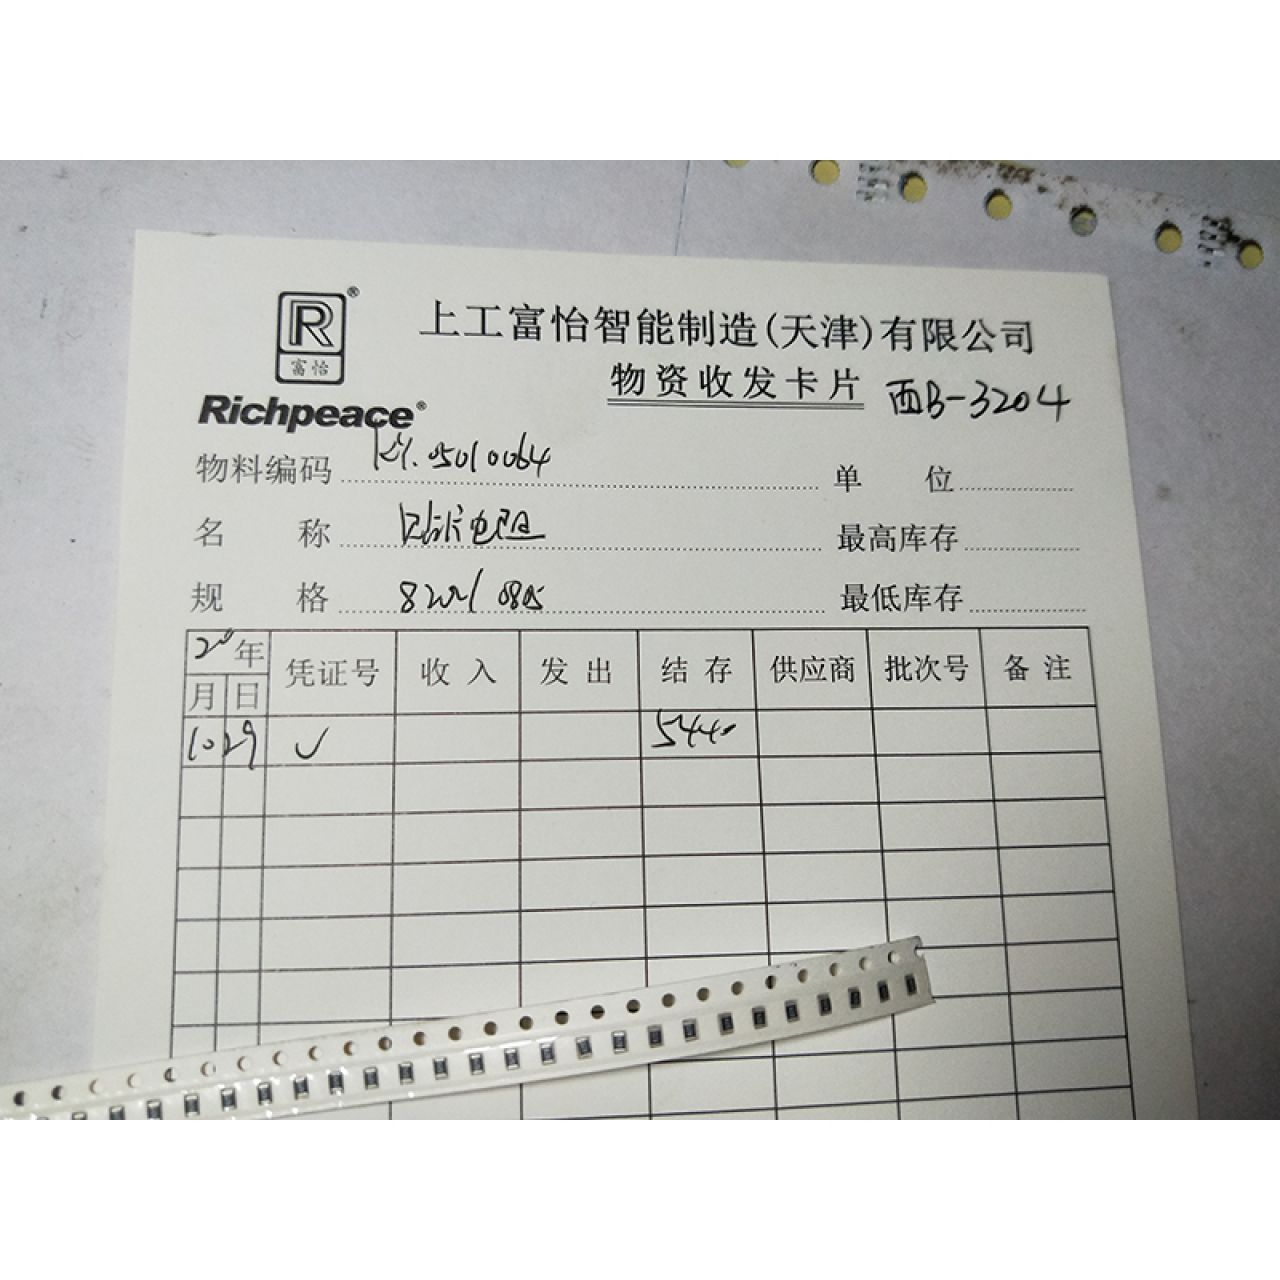 R®
富怡
Richpeace®
上工富怡智能制造(天津)有限公司
物资收发卡片 西B-3204
物料编码 05010064 单 位
名 称 贴片电阻 最高库存
规 格 0805 最低库存
20年 凭证号 收 入 发 出 结 存 供应商 批次号 备 注
月 日
10 29 ✓ 5440